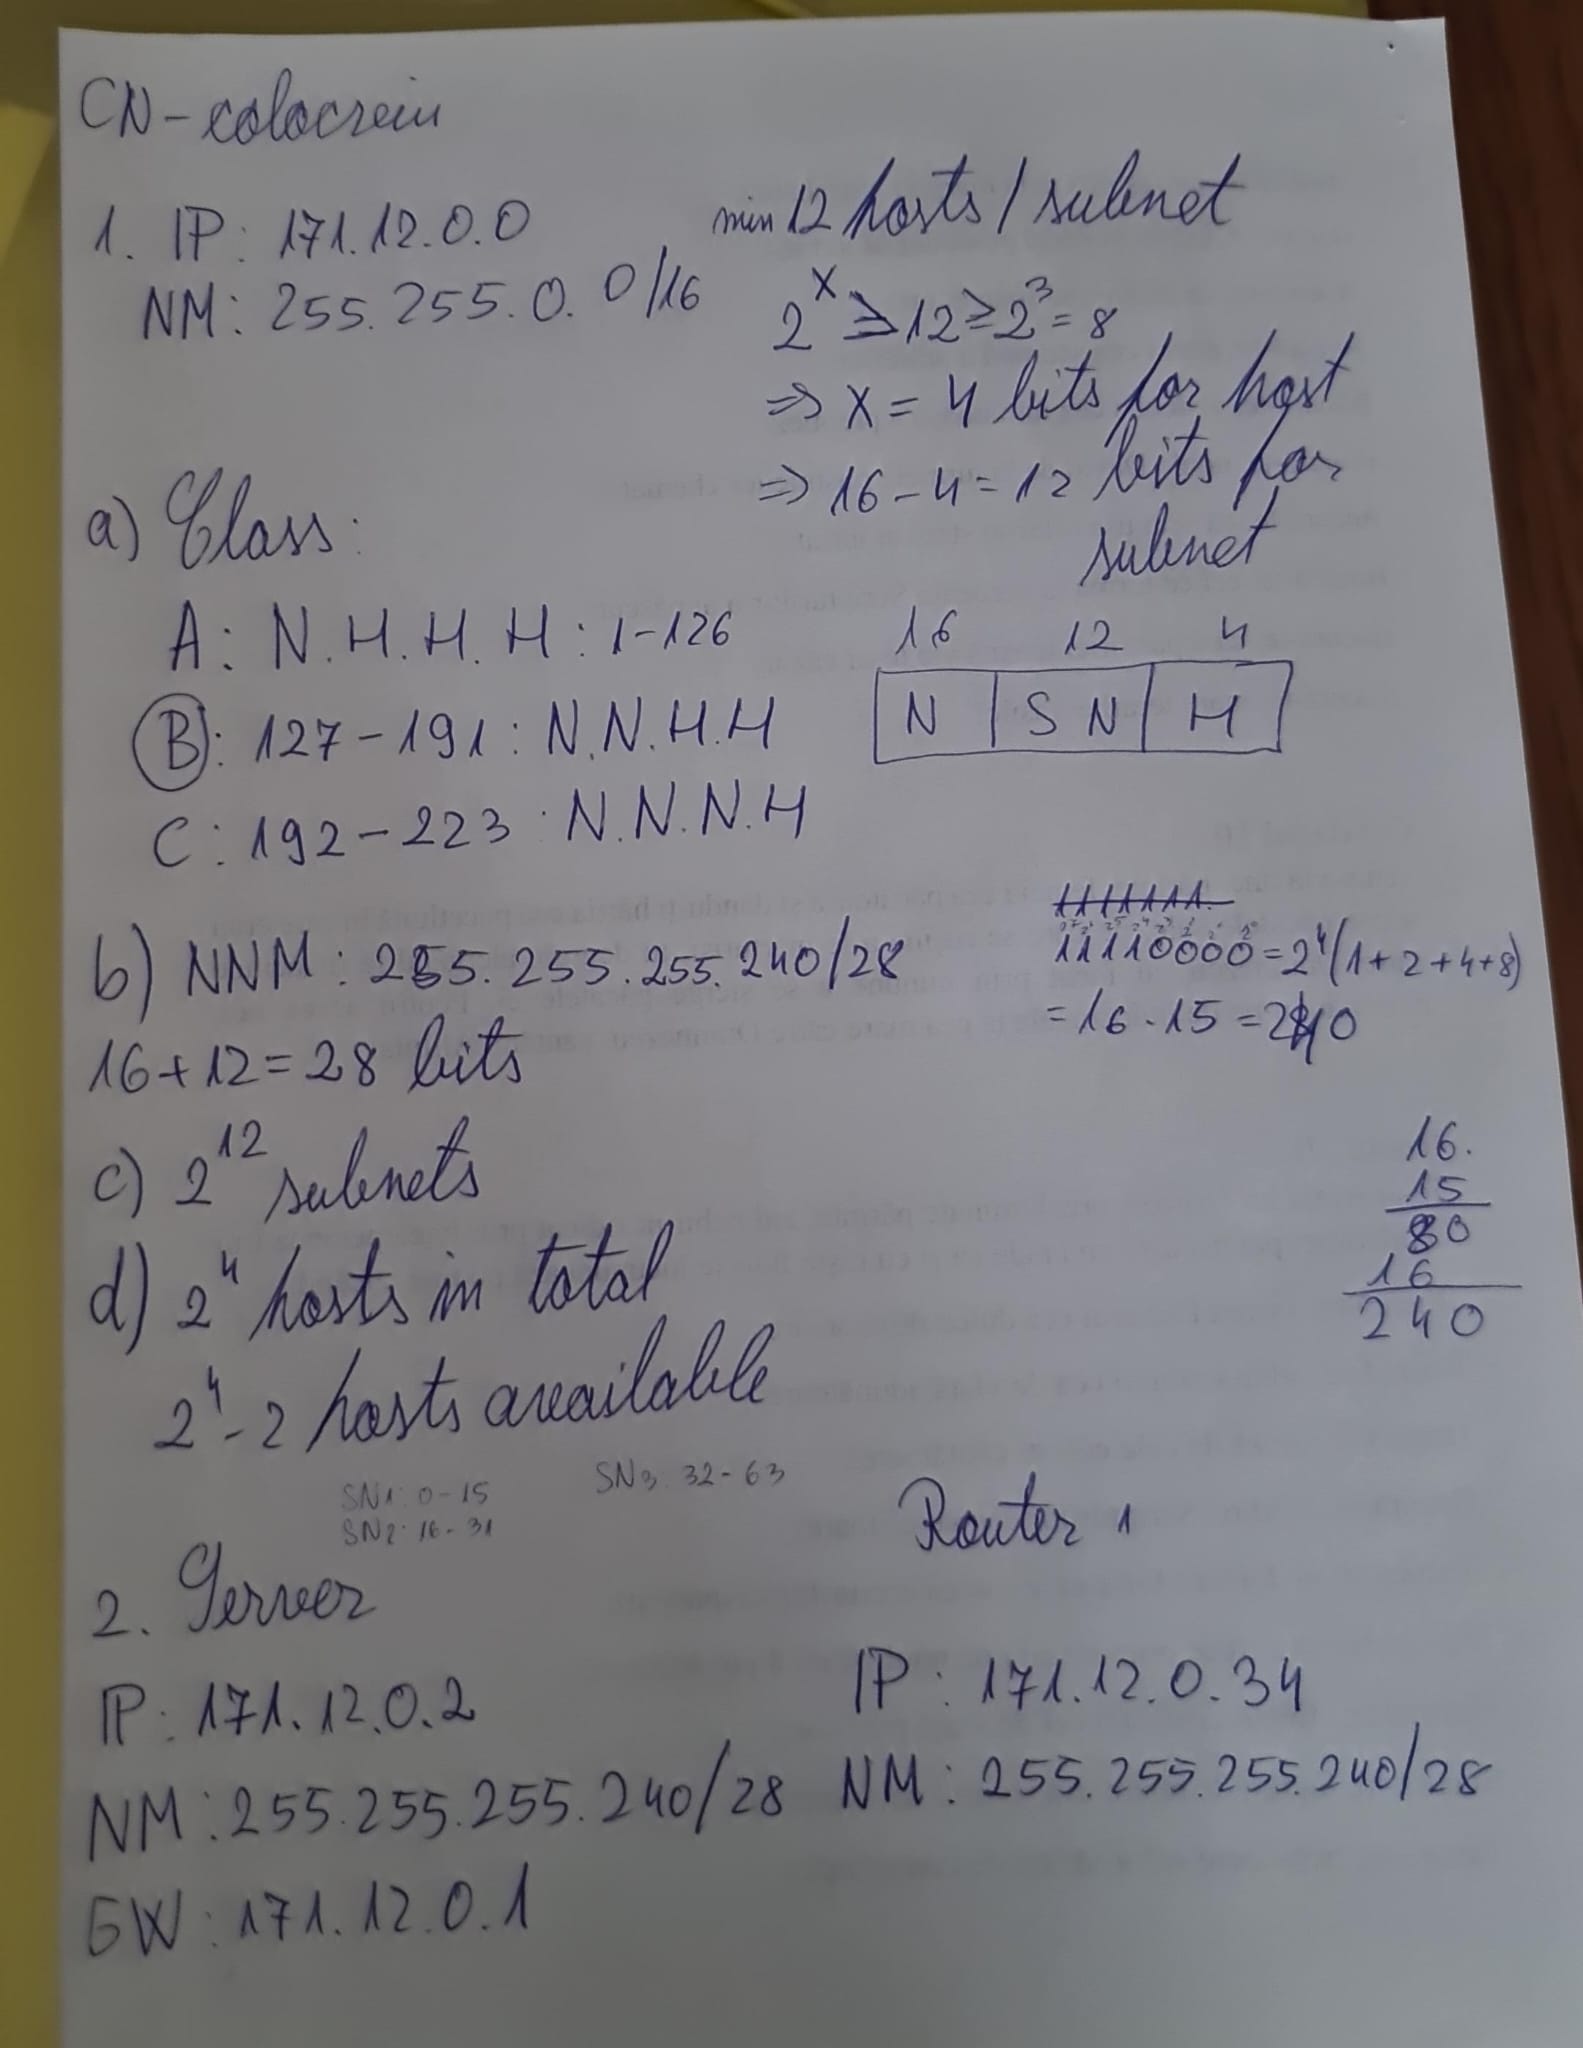 CN - colocviu
1. IP: 171.12.0.0
NM: 255.255.0.0/16
min 12 hosts / subnet
2^x ≥ 12 ≥ 2^3 = 8
=> x = 4 bits for host
=> 16 - 4 = 12 bits for
subnet
a) Class:
A: N.H.H.H : 1-126
B: 127-191 : N.N.H.H
C: 192-223 : N.N.N.H
16 12 4
N | SN | H
b) NNM: 255.255.255.240/28
16+12 = 28 bits
1111111
2^7 2^6 2^5 2^4 2^3 2^2 2^1 2^0
11110000 = 2^4(1+2+4+8)
= 16·15 = 240
c) 2^12 subnets
d) 2^4 hosts in total
2^4 - 2 hosts available
16·
15
80
16
240
SN1: 0-15
SN2: 16-31
SN3: 32-63
2. Server
IP: 171.12.0.2
NM: 255.255.255.240/28
GW: 171.12.0.1
Router 1
IP: 171.12.0.34
NM: 255.255.255.240/28